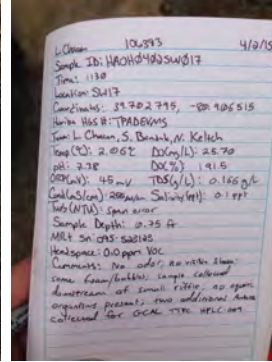 L. Chacon 106393 4/2/15
Sample ID: HA0HØ4Ø2SWØ17
Time: 1130
Location: SW17
Coordinates: 39.702795, -80.906515
Horiba H6S #: TPADEVMS
Team: L. Chacon, S. N. Keltch
Temp (°C): 2.06°C DO(mg/L): 25.70
pH: 7.78 DO(%): 191.5
ORP(mV): 45 mV TDS(g/L): 0.166 g/L
Cond(mS/cm): Salinity(ppt): 0.1 ppt
Turb(NTU): span error
Sample Depth: 0.75 ft
MR# Sn: 095-523125
Headspace: 0.0 ppm VOC
Comments: No odor, no visible sheen
some foam/bubbles, sample collected
downstream of small riffle, no aquatic
organisms present; two additional
collected for GCAL